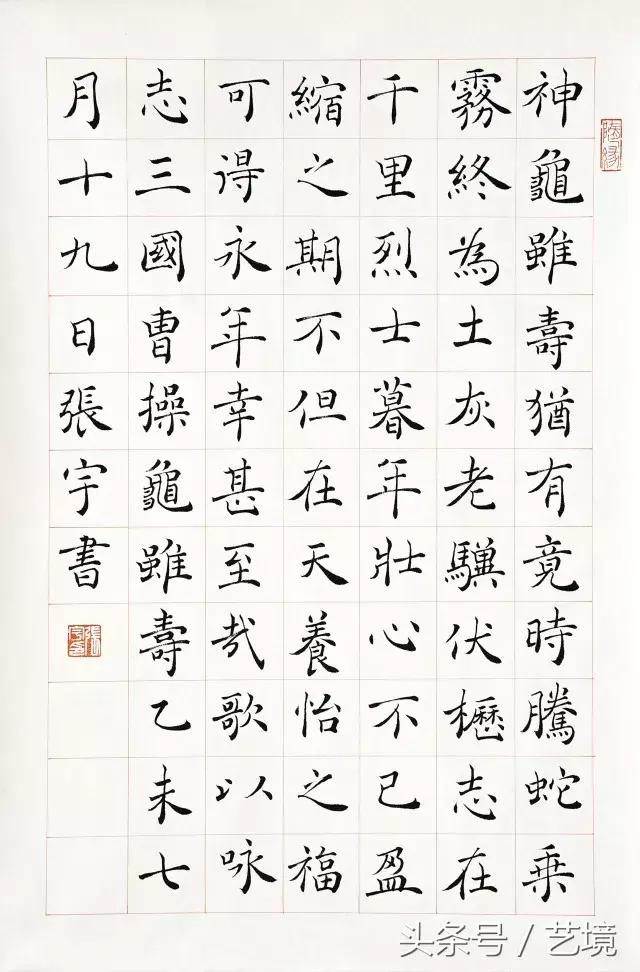 神龜雖壽猶有竟時騰蛇乘
霧終為土灰老驥伏櫪志在
千里烈士暮年壯心不已盈
縮之期不但在天養怡之福
可得永年幸甚至哉歌以咏
志三國曹操龜雖壽乙未七
月十九日張宇書
头条号 / 艺境